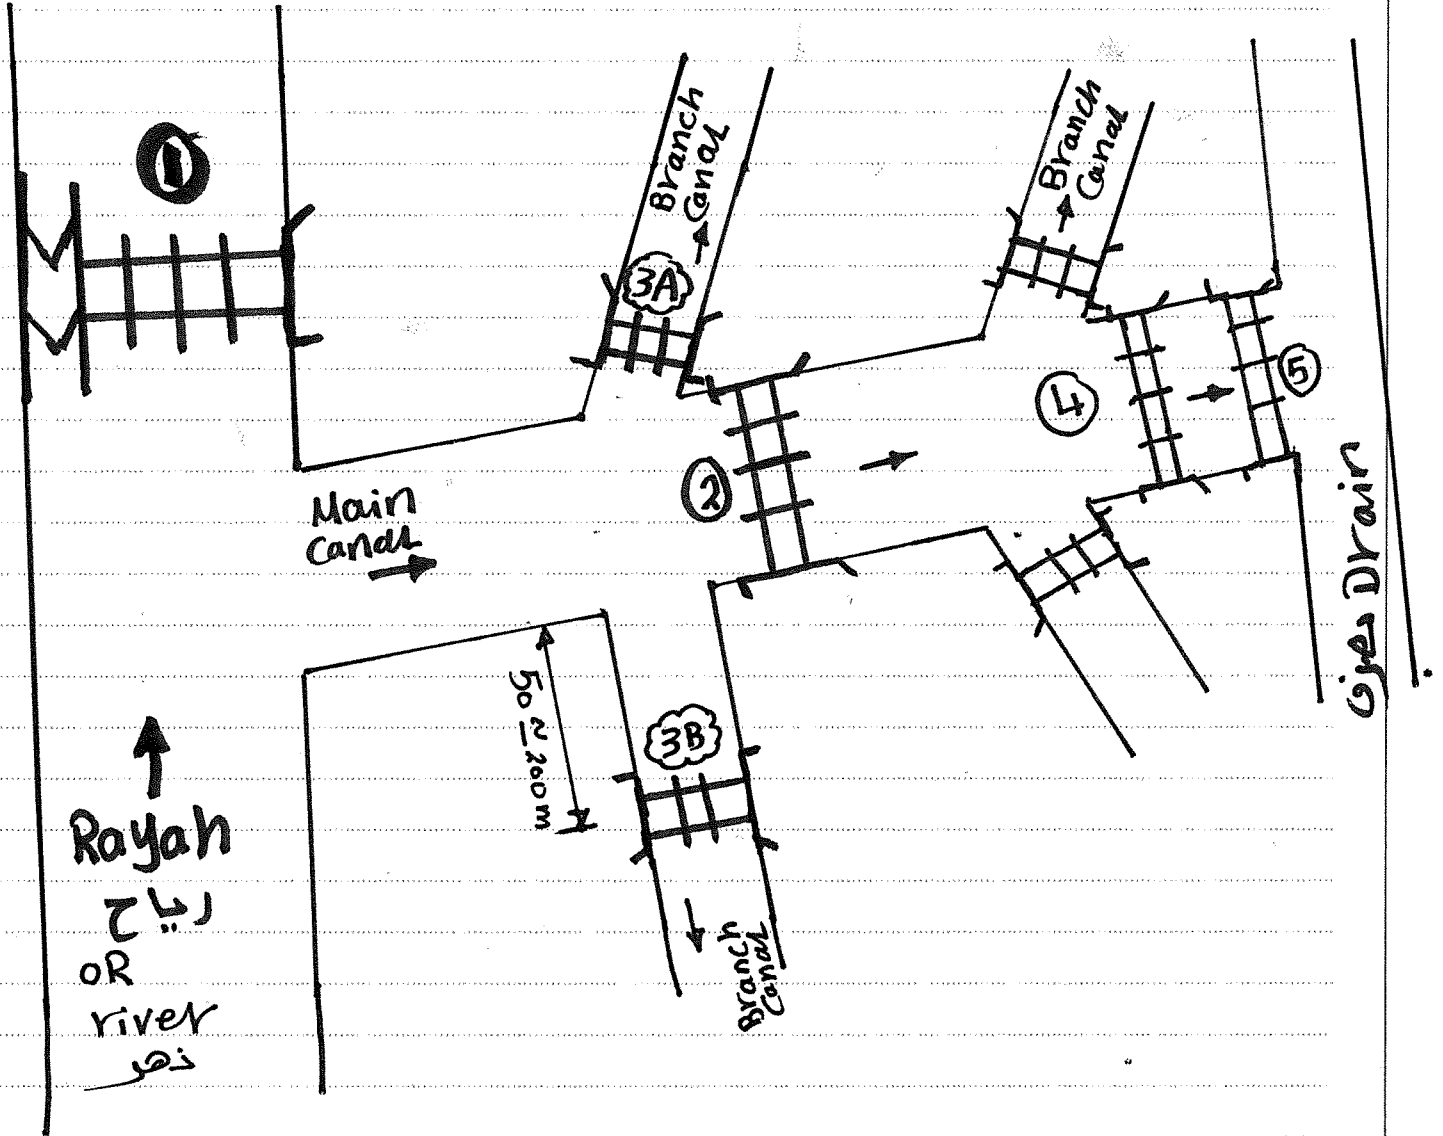 1
Branch
Canal
3A
Branch
Canal
Main
Canal
2
4
5
Drain مصرف
50 ≃ 200m
3B
Branch
Canal
Rayah
رياح
OR
river
نهر